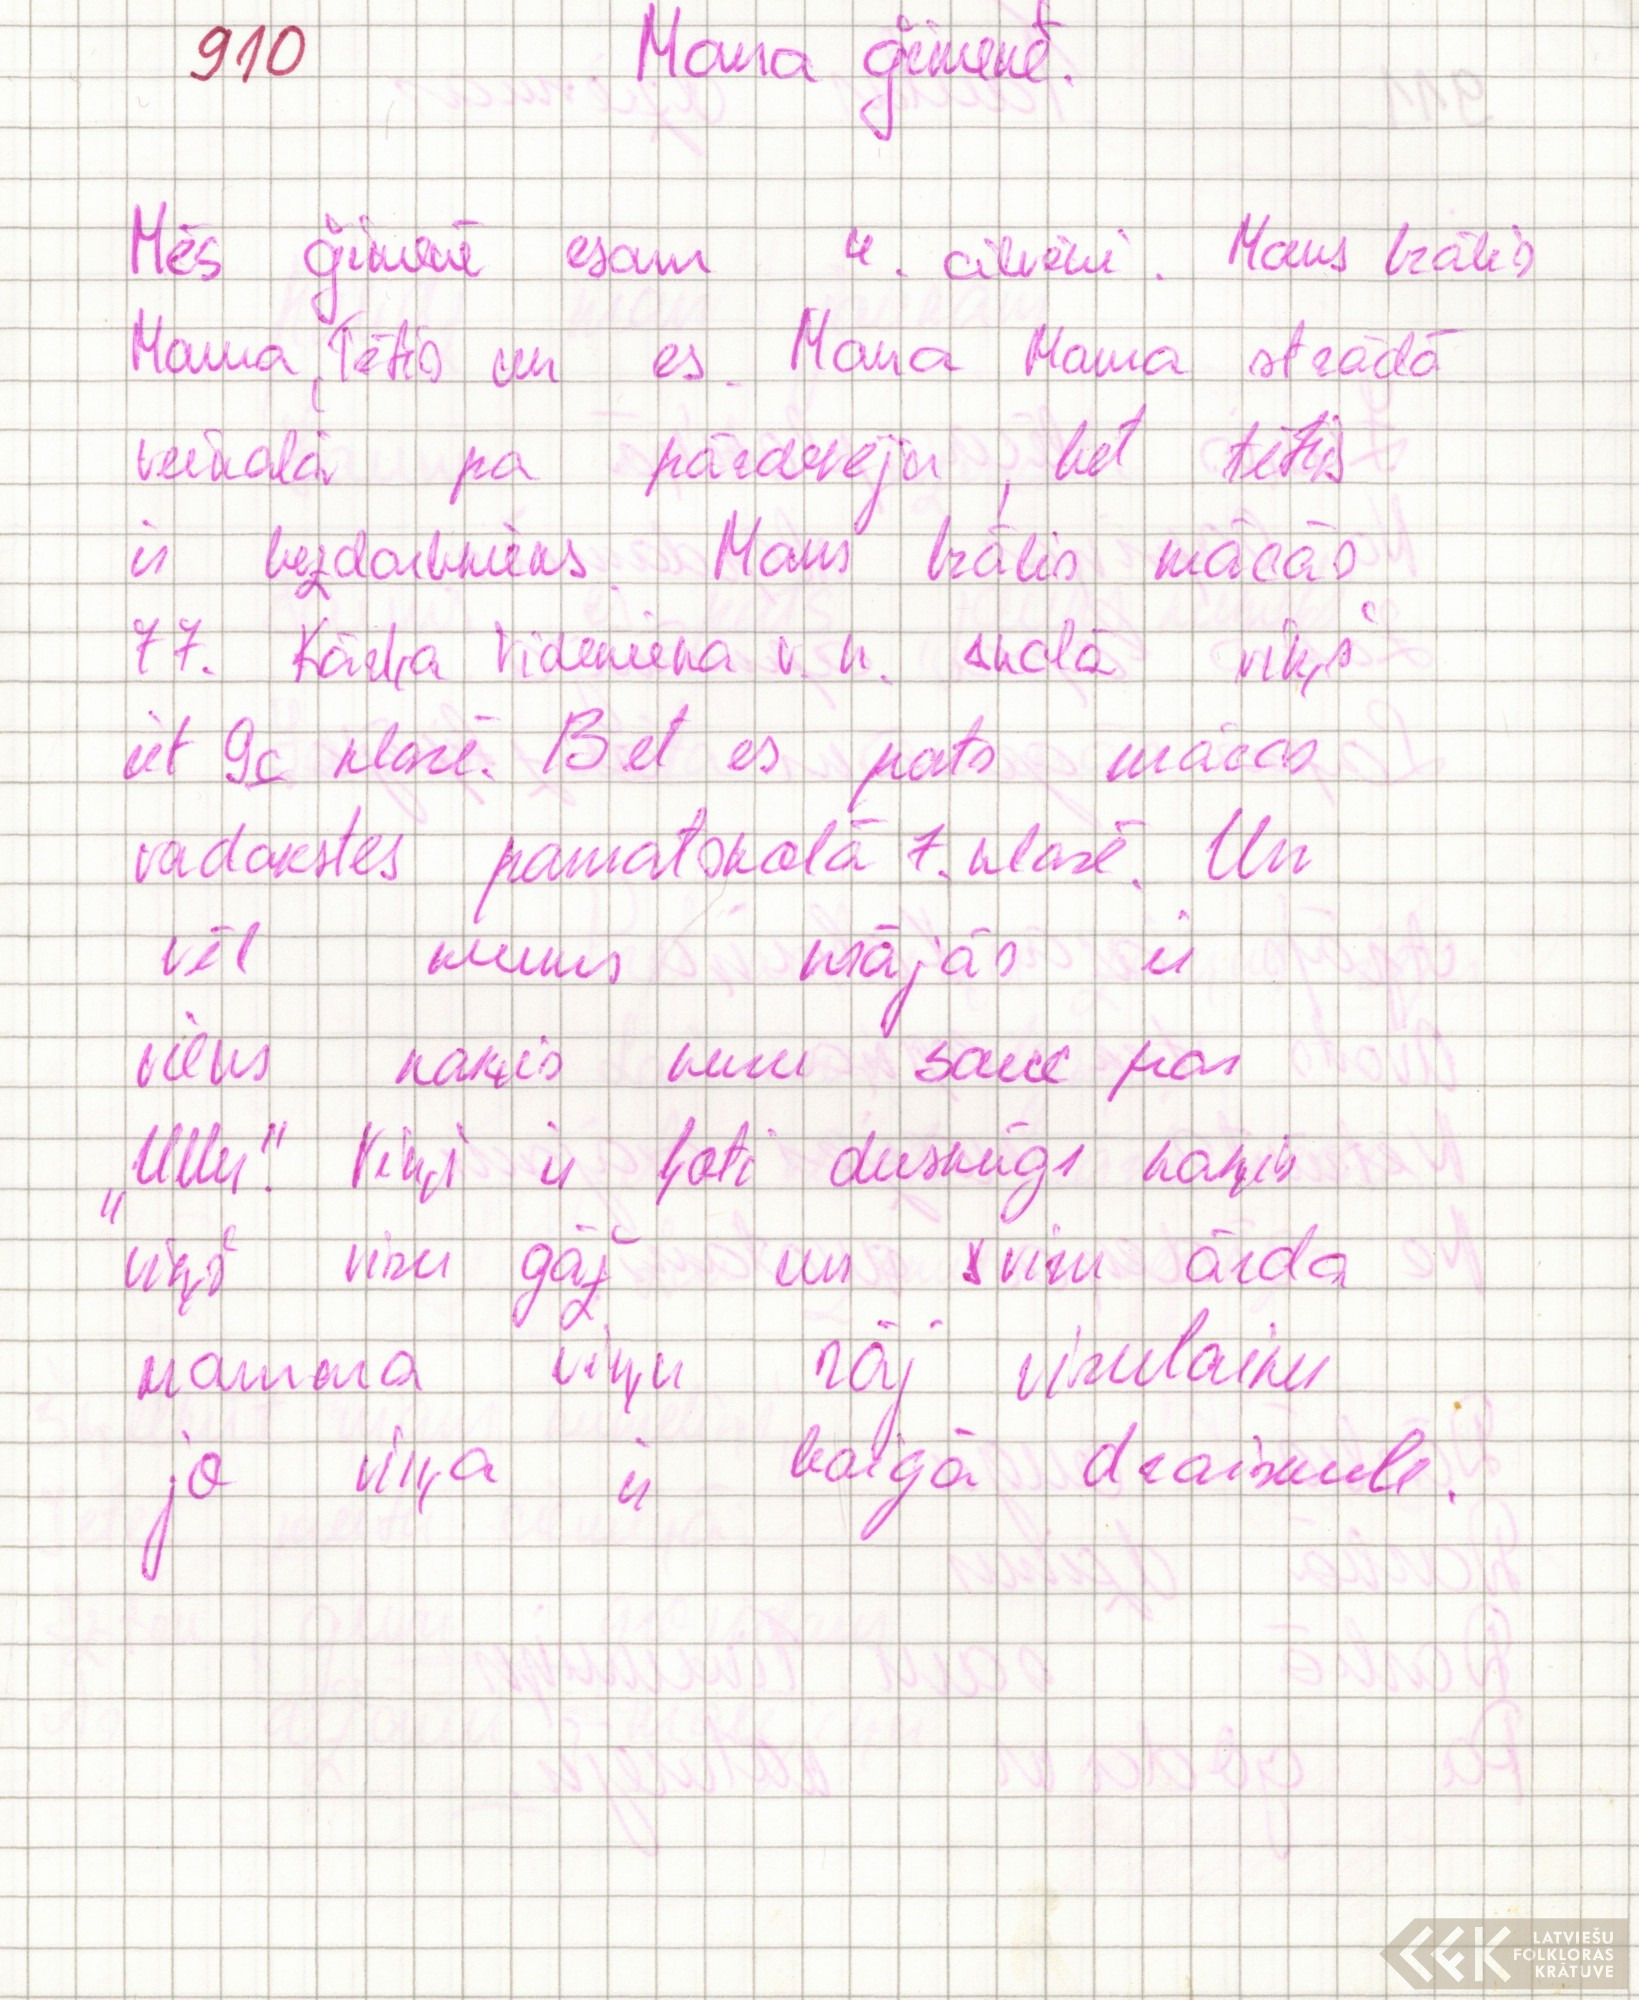 910 Mana ģimenē.
Mēs ģimenē esam 4. cilvēki. Mans brālis
Mama, Tētis un es. Mana Mama strādā
veikalā pa pārdevēju, bet tētis
ir bezdarbnieks. Mans brālis mācās
77. Kārļa Videnieka v.k. skolā viņš
iet 9c klasē. Bet es pats mācos
vadakstes pamatskolā 7. klasē. Un
vēl mums mājās ir
viens kaķis kuru sauc par
"Ully." Viņš ir ļoti dusmīgs kaķis
viņš visu gāž un visu ārda
mamma viņu rāj visulaiku
jo viņa ir baigā draiskule.
LATVIEŠU
FOLKLORAS
KRĀTUVE